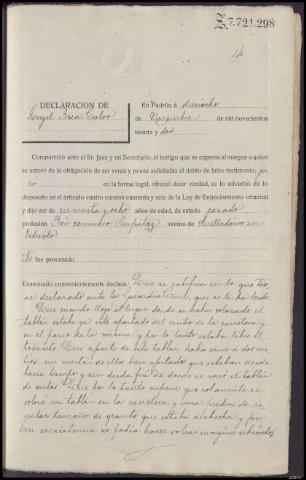 Z.7.721.298
14
DECLARACION DE
Angel Brea Calvo
En Padrón á dieciocho
de Noviembre de mil novecientos
treinta y dos
Compareció ante el Sr. Juez y mi Secretario, el testigo que se expresa al margen a quien
se enteró de la obligación de ser veraz y penas señaladas al delito de falso testimonio, ju
ró en la forma legal, ofreció decir verdad, se lo advertió en lo
dispuesto en el artículo cuatro cientos cuarenta y seis de la Ley de Enjuiciamiento criminal
y dijo ser de cincuenta y ocho años de edad, de estado casado
profesión Peón caminero Capataz vecino de
No fue procesado
Examinado convenientemente declara: Que se ratifica en lo que tie
ne declarado ante la Guardia Civil, que se le ha leido.
Que cuando llegó al lugar donde se habia colocado el
tablón estaba ya este apartado del centro de la carretera y
en el paseo de la misma y por lo tanto estaba libre el
tránsito. Que aparte de este tablón habia cinco o dos me
tros, un montón de ellos bien apilados que estaban desde
hacia tiempo y sin duda fué de donde se sacó el tablón
de autos. Que por lo tanto supone que solamente se
colocó un tablón en la carretera y una piedra de re
gular tamaño de granito que estaba deshecha y por
su consistencia no podia hacer volcar ningún vehículo